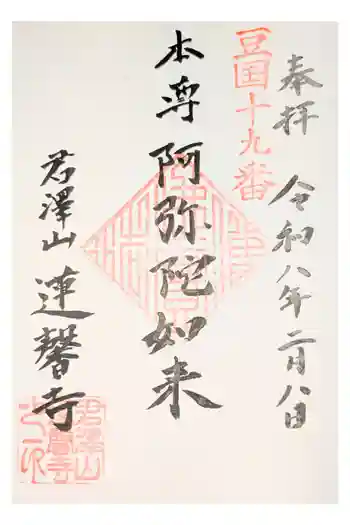 奉拝 令和八年二月八日
豆国十九番
本尊 阿弥陀如来
君澤山 蓮馨寺